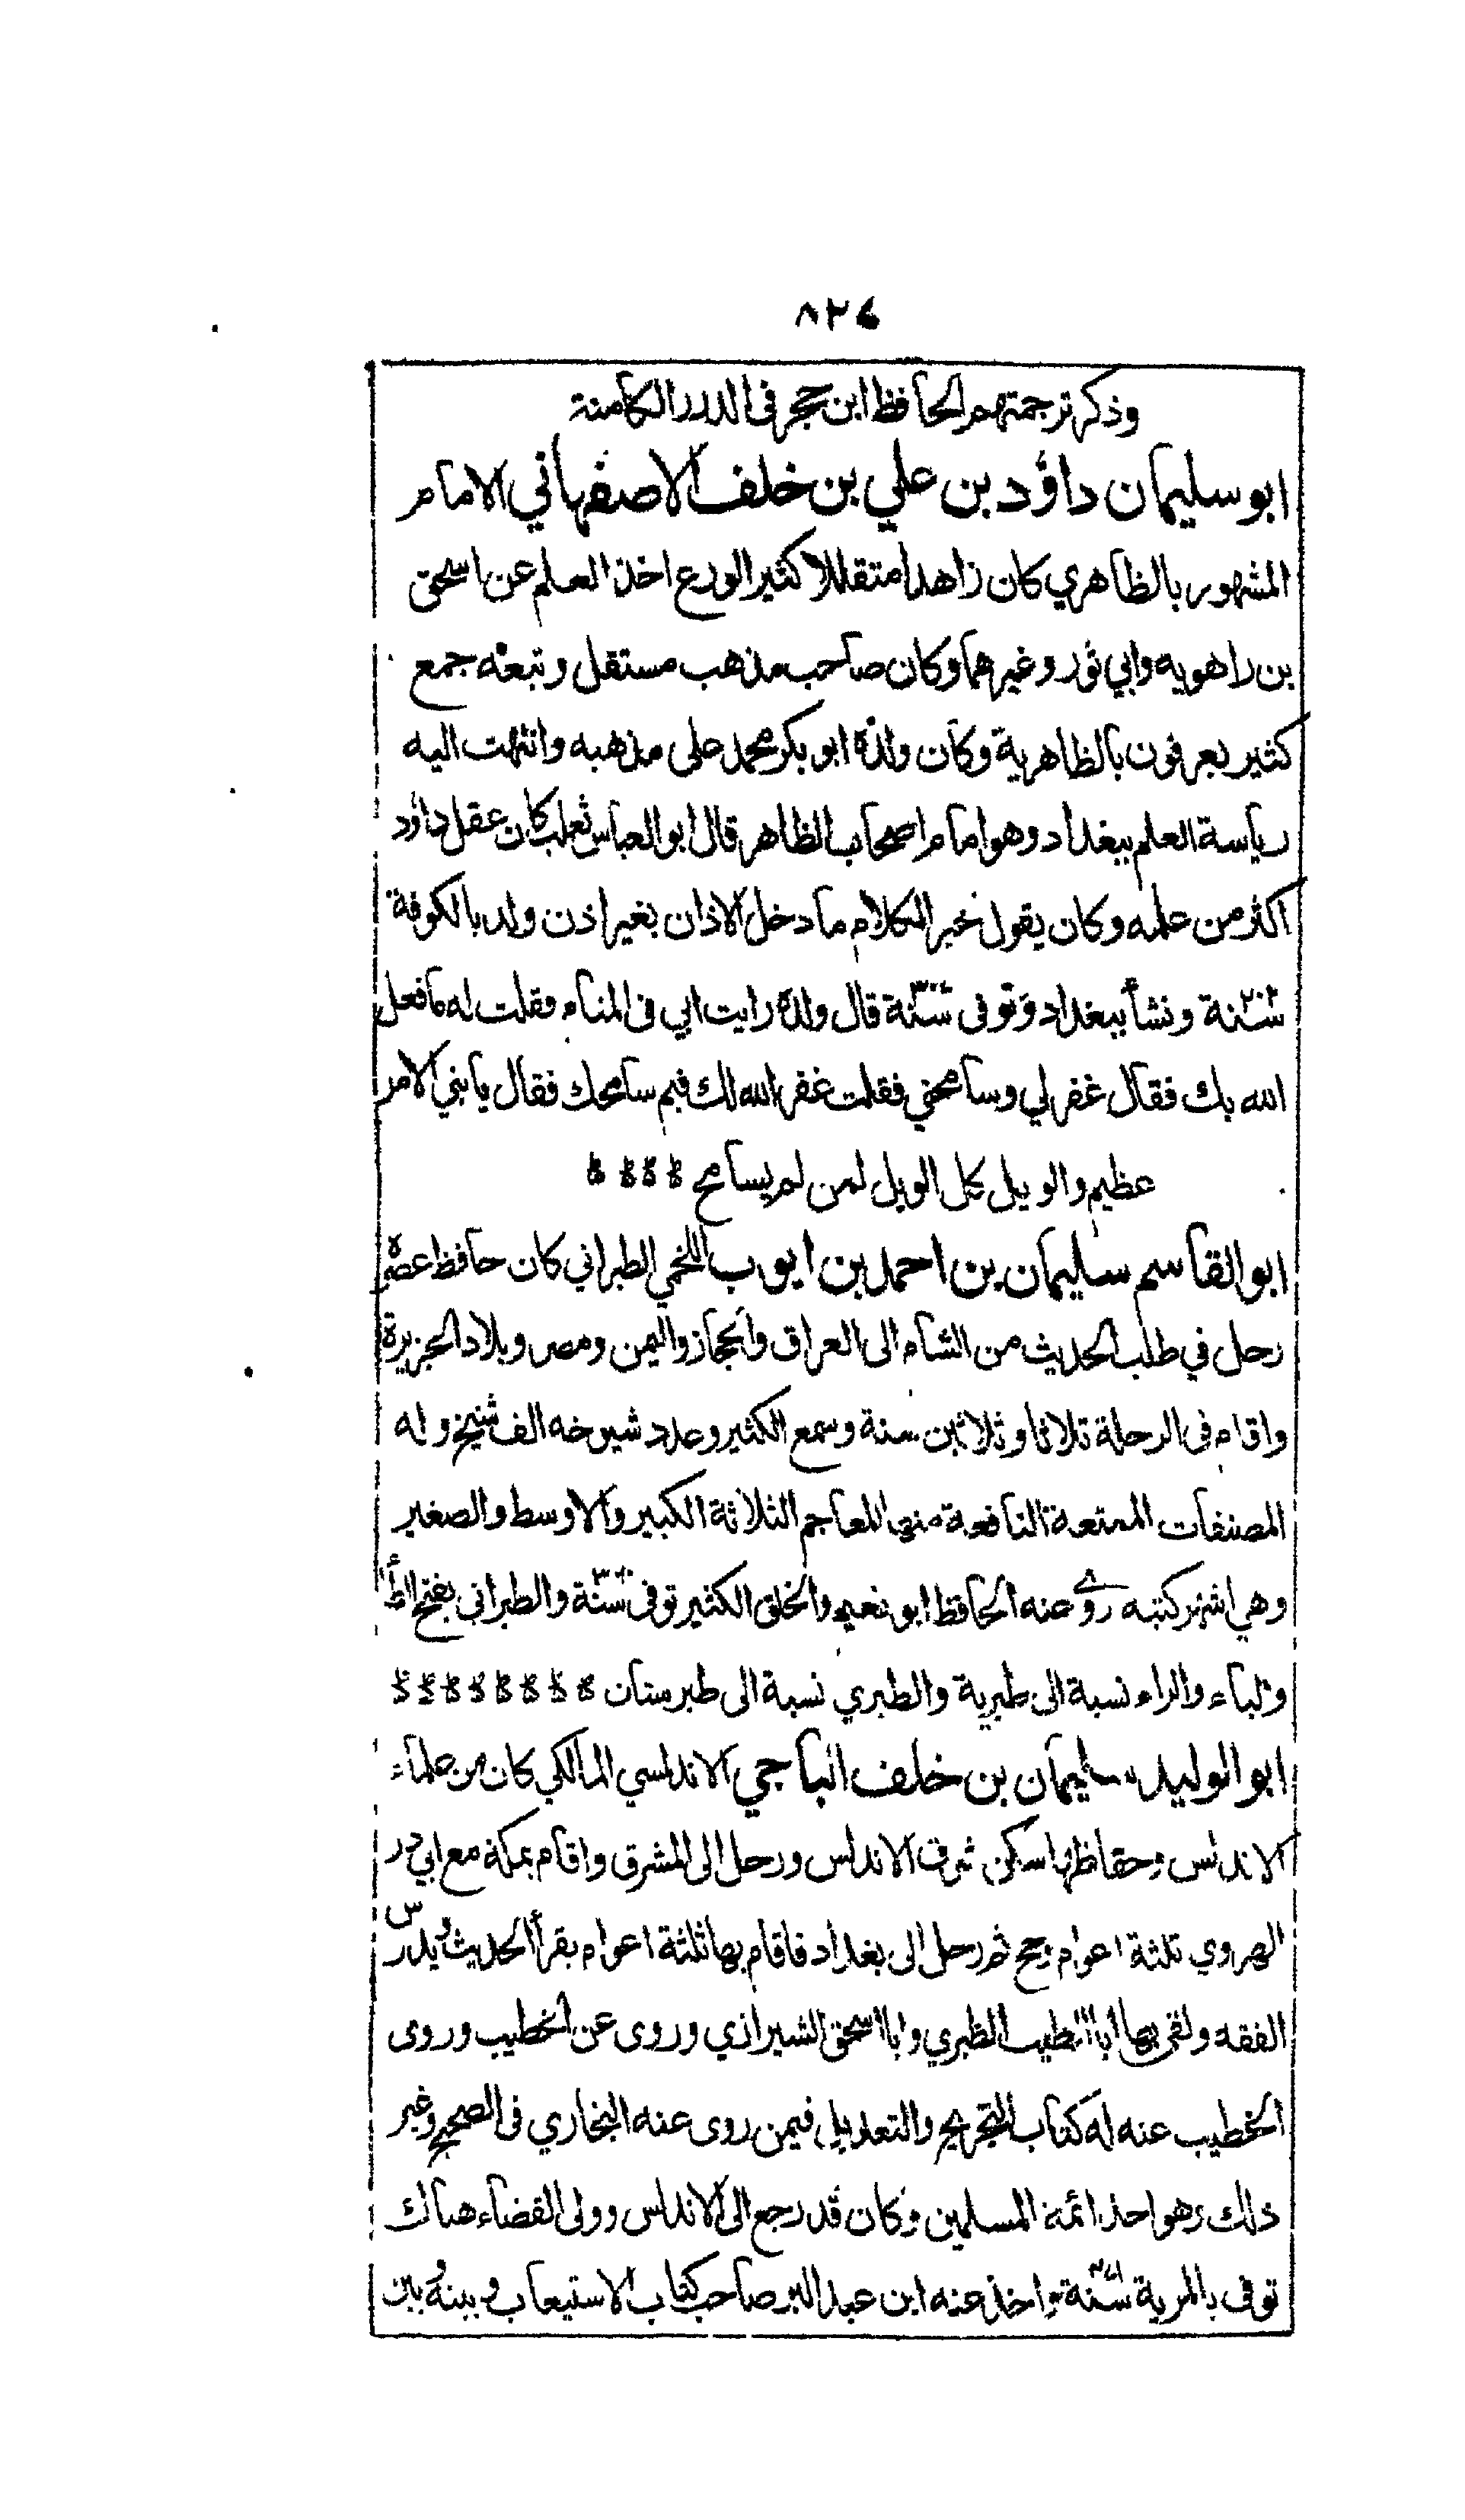 ٨٢٤
وذكر ترجمتهم الحافظ ابن حجر فى الدرر الكامنة
ابو سليمان داؤد بن علي بن خلف الاصفهاني الامام
المشهور بالظاهري كان زاهدا متقللا كثير الورع اخذ العلم عن اسحق
بن راهويه وابي ثور وغيرهما وكان صاحب مذهب مستقل وتبعه جمع
كثير يعرفون بالظاهرية وكان ولده ابو بكر محمد على مذهبه وانتهت اليه
رياسة العلم ببغداد وهو امام اصحاب الظاهر قال ابو العباس ثعلب كان عقل داؤد
اكثر من علمه وكان يقول خير الكلام ما دخل الاذان بغير اذن ولد بالكوفة
سنة ونشأ ببغداد وتوفى سنة قال ولده رايت ابي فى المنام فقلت له ما فعل
الله بك فقال غفر لي وسامحني فقلت غفر الله لك فبم سامحك فقال يا بني الامر
عظيم والويل كل الويل لمن لم يسامح
ابو القاسم سليمان بن احمد بن ايوب اللخمي الطبراني كان حافظ عصره
رحل في طلب الحديث من الشام الى العراق والحجاز واليمن ومصر وبلاد الجزيرة
واقام فى الرحلة ثلاثا وثلاثين سنة وسمع الكثير وعدد شيوخه الف شيخ وله
المصنفات الممتعة النافعة منها المعاجم الثلاثة الكبير والاوسط والصغير
وهي اشهر كتبه روى عنه الحافظ ابو نعيم والخلق الكثير توفى سنة والطبرانى بفتح الطأ
والباء والراء نسبة الى طبرية والطبري نسبة الى طبرستان
ابو الوليد سليمان بن خلف الباجي الاندلسي المالكي كان من علماء
الاندلس وحفاظها سكن شرق الاندلس ورحل الى المشرق واقام بمكة مع ابي ذر
الهروي ثلثة اعوام وحج ثم رحل الى بغداد فاقام بها ثلثة اعوام يقرأ الحديث ويدرس
الفقه ولقى بها ابا الطيب الطبري وابا اسحق الشيرازي وروى عن الخطيب وروى
الخطيب عنه له كتاب التجريح والتعديل فيمن روى عنه البخاري فى الصحيح وغير
ذلك وهو احد ائمة المسلمين وكان قد رجع الى الاندلس وولى القضاء هناك
توفى بالمرية سنة واخذ عنه ابن عبد البر صاحب كتاب الاستيعاب وبينه وبين